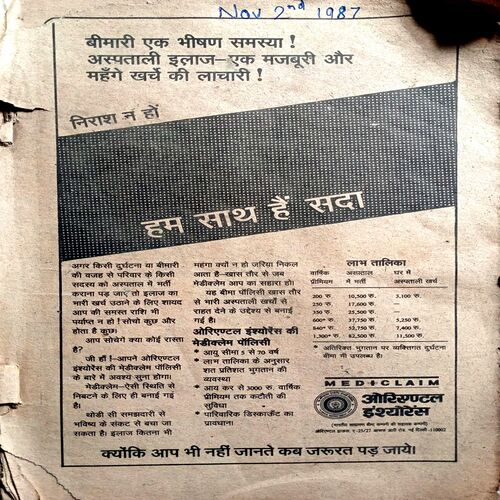 Nov 2nd 1987
बीमारी एक भीषण समस्या !
अस्पताली इलाज–एक मजबूरी और
महँगे खर्चे की लाचारी !
निराश न हों
हम साथ हैं सदा
अगर किसी दुर्घटना या बीमारी
की वजह से परिवार के किसी
सदस्य को अस्पताल में भर्ती
कराना पड़ जाए तो इलाज का
भारी खर्च उठाने के लिए शायद
आप की समस्त राशि भी
पर्याप्त न हो ! सोचा कुछ और
होता है कुछ।
आप सोचेंगे क्या कोई रास्ता
है?
जी हाँ !–आपने ओरिएण्टल
इंश्योरेंस की मेडीक्लेम पॉलिसी
के बारे में अवश्य सुना होगा।
मेडीक्लेम–ऐसी स्थिति से
निबटने के लिए ही बनाई गई
है।
थोड़ी सी समझदारी से
भविष्य के संकट से बचा जा
सकता है। इलाज कितना भी
महंगा क्यों न हो जरिया निकल
आता है–खास तौर से जब
मेडीक्लेम आप का सहारा हो।
यह बीमा पॉलिसी खास तौर
से भारी अस्पताली खर्चों से
राहत देने के उद्देश्य से बनाई
गई है।
ओरिएण्टल इंश्योरेंस की
मेडीक्लेम पॉलिसी
* आयु सीमा 5 से 70 वर्ष
* लाभ तालिका के अनुसार
शत प्रतिशत भुगतान की
व्यवस्था
* आय कर से 3000 रु. वार्षिक
प्रीमियम तक कटौती की
सुविधा
* पारिवारिक डिस्काउँट का
प्रावधान।
लाभ तालिका
वार्षिक अस्पताल घर में
प्रीमियम में भर्ती अस्पताली खर्च
200 रु. 10,500 रु. 3,100 रु.
250 रु. 17,600 रु.
350 रु. 25,500 रु.
600* रु. 37,750 रु. 5,250 रु.
840* रु. 52,750 रु. 7,400 रु.
1,300* रु. 82,500 रु. 11,500 रु.
* अतिरिक्त भुगतान पर व्यक्तिगत दुर्घटना
बीमा भी उपलब्ध है।
MEDICLAIM
ओरिएण्टल
इंश्योरेंस
(भारतीय साधारण बीमा कम्पनी की सहायक कम्पनी)
ओरिएण्टल हाऊस, ए-25/27 आसफ अली रोड, नई दिल्ली-110002
क्योंकि आप भी नहीं जानते कब जरूरत पड़ जाये।